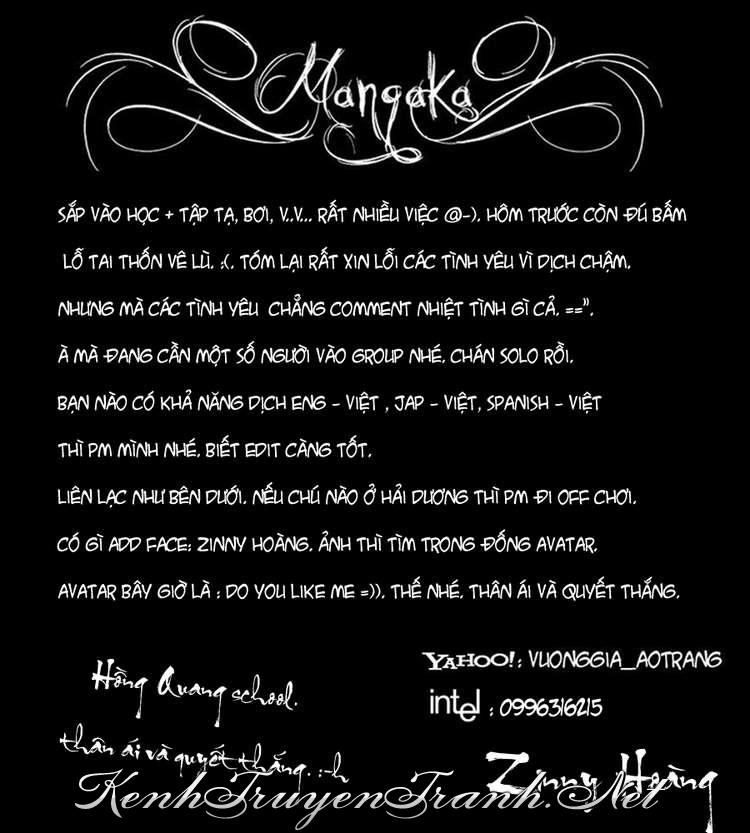 Mangaka
SẮP VÀO HỌC + TẬP TẠ, BƠI, V.V... RẤT NHIỀU VIỆC @-). HÔM TRƯỚC CÒN ĐÚ BẤM
LỖ TAI THỐN VÊ LÙ. :(. TÓM LẠI RẤT XIN LỖI CÁC TÌNH YÊU VÌ DỊCH CHẬM.
NHƯNG MÀ CÁC TÌNH YÊU CHẲNG COMMENT NHIỆT TÌNH GÌ CẢ. ==".
À MÀ ĐANG CẦN MỘT SỐ NGƯỜI VÀO GROUP NHÉ. CHÁN SOLO RỒI.
BẠN NÀO CÓ KHẢ NĂNG DỊCH ENG - VIỆT , JAP - VIỆT, SPANISH - VIỆT
THÌ PM MÌNH NHÉ. BIẾT EDIT CÀNG TỐT.
LIÊN LẠC NHƯ BÊN DƯỚI. NẾU CHÚ NÀO Ở HẢI DƯƠNG THÌ PM ĐI OFF CHƠI.
CÓ GÌ ADD FACE: ZINNY HOÀNG. ẢNH THÌ TÌM TRONG ĐỐNG AVATAR.
AVATAR BÂY GIỜ LÀ : DO YOU LIKE ME =)). THẾ NHÉ. THÂN ÁI VÀ QUYẾT THẮNG.
YAHOO!: VUONGGIA_AOTRANG
Hồng Quang school.
intel : 0996316215
thân ái và quyết thắng. :-h
Zinny Hoàng
KenhTruyenTranh.Net